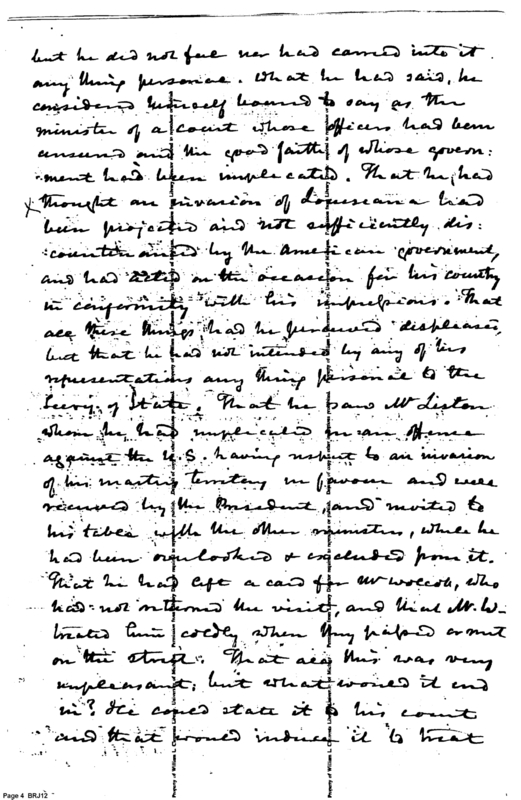 but he did not feel nor had carried into it
any thing personal. What he had said, he
considered himself bound to say as the
minister of a court whose officers had been
censured and the good faith of whose govern:
ment had been implicated. That he had
x thought an invasion of Louisiana had
been projected and not sufficiently dis:
countenanced by the American government,
and had acted on the occasion for his country
in conformity with his impressions. That
all these things, had he perceived displeased,
but that he had not intended by any of his
representations any thing personal to the
Secry. of State. That he saw Mr Liston
whom he had implicated in an offence
against the U.S. having respect to an invasion
of his masters territory in favour and well
received by the President, and invited to
his table with the other ministers, while he
had been overlooked & excluded from it.
That he had left a card for Mr Wolcott, who
had not returned the visit, and that Mr. W-
treated him coldly when they passed or met
on the street. That all this was very
unpleasant; but what would it end
in? He could state it to his court
and that would induce it to treat
Property of William L. C
Property of William L. C
Page 4 BRJ12